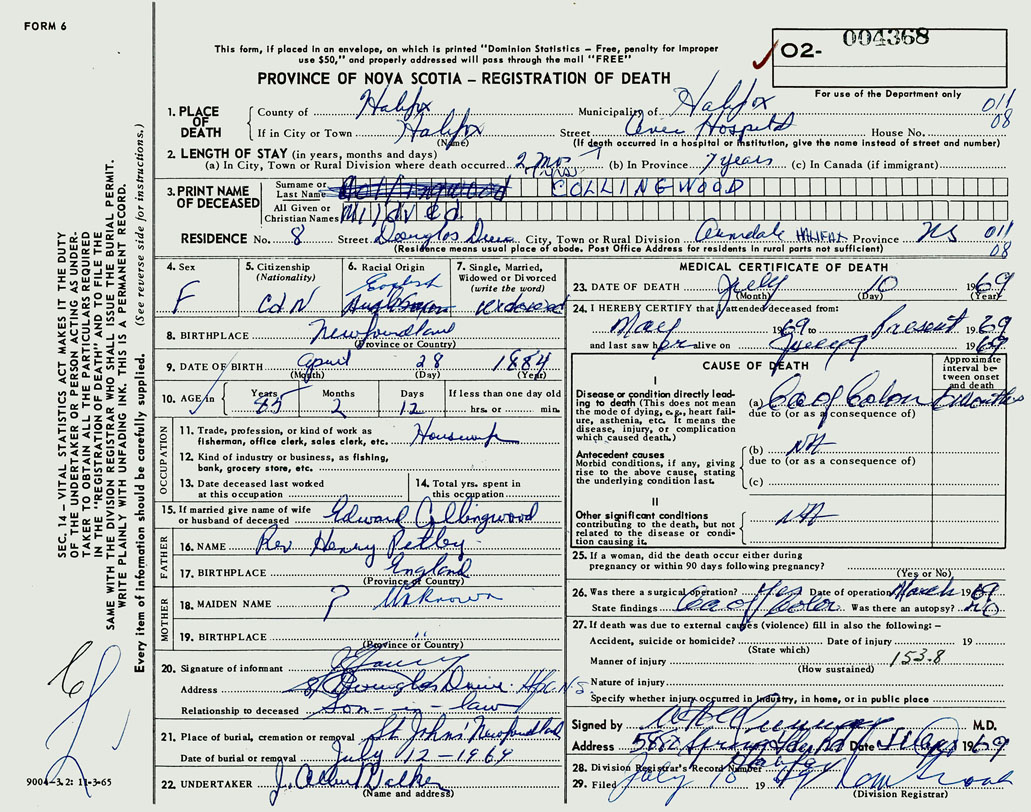 FORM 6
This form, if placed in an envelope, on which is printed "Dominion Statistics – Free, penalty for improper
use $50," and properly addressed will pass through the mail "FREE"
PROVINCE OF NOVA SCOTIA – REGISTRATION OF DEATH
O2- 004368
For use of the Department only
1. PLACE OF DEATH
County of Halifax Municipality of Halifax 011
If in City or Town Halifax Street Hospital House No. 08
(Name) (If death occurred in a hospital or institution, give the name instead of street and number)
2. LENGTH OF STAY (in years, months and days)
(a) In City, Town or Rural Division where death occurred 2 mos (b) In Province 7 years (c) In Canada (if immigrant)
7 yrs
3. PRINT NAME OF DECEASED
Surname or Last Name COLLINGWOOD
All Given or Christian Names Mildred
RESIDENCE No. 8 Street Douglas Drive City, Town or Rural Division Armdale HALIFAX Province NS 011
(Residence means usual place of abode. Post Office Address for residents in rural parts not sufficient) 08
4. Sex F
5. Citizenship (Nationality) CdN
6. Racial Origin English
7. Single, Married, Widowed or Divorced (write the word) Widowed
8. BIRTHPLACE Newfoundland
(Province or Country)
9. DATE OF BIRTH April 28 1884
(Month) (Day) (Year)
10. AGE in Years 85 Months 2 Days 12 If less than one day old hrs. or min.
OCCUPATION
11. Trade, profession, or kind of work as fisherman, office clerk, sales clerk, etc. Housewife
12. Kind of industry or business, as fishing, bank, grocery store, etc.
13. Date deceased last worked at this occupation
14. Total yrs. spent in this occupation
15. If married give name of wife or husband of deceased Edward Collingwood
FATHER
16. NAME Rev Henry Petley
17. BIRTHPLACE England
(Province or Country)
MOTHER
18. MAIDEN NAME ? Unknown
19. BIRTHPLACE "
(Province or Country)
20. Signature of informant
Address 8 Douglas Drive Hfx. N.S.
Relationship to deceased Son-in-law
21. Place of burial, cremation or removal St John's Newfoundland
Date of burial or removal July 12-1969
22. UNDERTAKER J. Albert Walker
(Name and address)
MEDICAL CERTIFICATE OF DEATH
23. DATE OF DEATH July 10 1969
(Month) (Day) (Year)
24. I HEREBY CERTIFY that I attended deceased from:
May 1969 to Present 1969
and last saw her alive on July 9 1969
CAUSE OF DEATH
Approximate interval between onset and death
I
Disease or condition directly leading to death (This does not mean the mode of dying, e.g., heart failure, asthenia, etc. It means the disease, injury, or complication which caused death.)
(a) Ca of Colon 6 months
due to (or as a consequence of)
Antecedent causes
Morbid conditions, if any, giving rise to the above cause, stating the underlying condition last.
(b) NA
due to (or as a consequence of)
(c)
II
Other significant conditions contributing to the death, but not related to the disease or condition causing it. NA
25. If a woman, did the death occur either during pregnancy or within 90 days following pregnancy?
(Yes or No)
26. Was there a surgical operation? Yes Date of operation March 1969
State findings Ca of Colon Was there an autopsy? No
27. If death was due to external causes (violence) fill in also the following: –
Accident, suicide or homicide? Date of injury 19
(State which)
Manner of injury 153.8
(How sustained)
Nature of injury
Specify whether injury occurred in industry, in home, or in public place
Signed by M.D.
Address 5882 Spring Garden Rd Date 1969
28. Division Registrar's Record Number Halifax
29. Filed July 19
(Division Registrar)
SEC. 14 – VITAL STATISTICS ACT MAKES IT THE DUTY
OF THE UNDERTAKER OR PERSON ACTING AS UNDER-
TAKER TO OBTAIN ALL THE PARTICULARS REQUIRED
IN THE "REGISTRATION OF DEATH" AND TO FILE THE
SAME WITH THE DIVISION REGISTRAR WHO SHALL ISSUE THE BURIAL PERMIT.
WRITE PLAINLY WITH UNFADING INK. THIS IS A PERMANENT RECORD.
Every item of information should be carefully supplied. (See reverse side for instructions.)
9004–3.2: 11-3-65